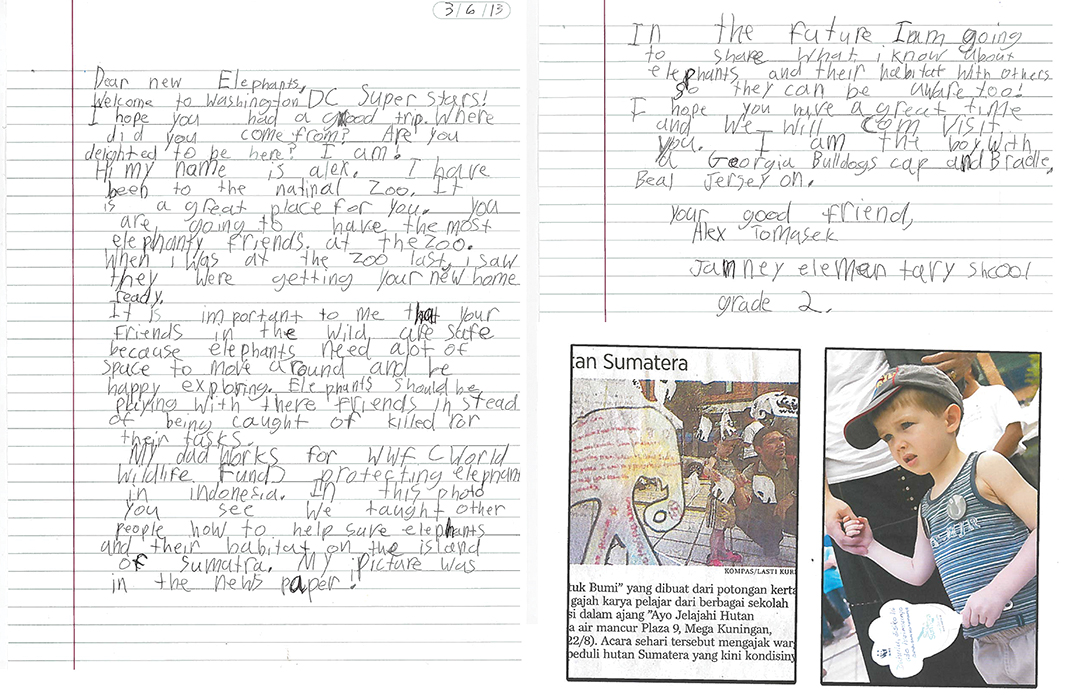 3/6/13
Dear new Elephants,
Welcome to Washington DC Super stars!
I hope you had a good trip. Where
did you come from? Are you
delighted to be here? I am!
Hi my name is alex. I have
been to the natinal Zoo. It
is a great place for you. you
are going to have the most
elephanty friends at the zoo.
When i was at the zoo last, i saw
they were getting your new home
ready.
It is important to me that your
friends in the wild are safe
because elephants need alot of
space to move around and be
happy exploring. Elephants should be
playing with there friends in stead
of being caught of killed for
their tasks.
My dad works for WWF (World
Wildlife Fund) protecting elephants
in indonesia. In this photo
you see we taught other
people how to help save elephants
and their habitat on the island
of Sumatra. My picture was
in the news paper!
In the future I am going
to share what i know about
elephants and their habitat with others
so they can be aware too!
I hope you have a great time
and we will com visit
you. I am the boy with
a Georgia Bulldogs cap and Bradley
Beal Jersey on.
your good friend,
Alex Tomasek
Janney elemen tary shcool
grade 2.
tan Sumatera
KOMPAS/LASTI KURN
tuk Bumi" yang dibuat dari potongan kerta
gajah karya pelajar dari berbagai sekolah
si dalam ajang "Ayo Jelajahi Hutan
a air mancur Plaza 9, Mega Kuningan,
22/8). Acara sehari tersebut mengajak warg
peduli hutan Sumatera yang kini kondisiny